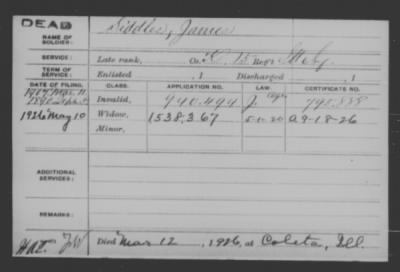 DEAD
NAME OF SOLDIER: Siddles, James
SERVICE: Late rank, Co. K, 15 Reg't Ill. Inf.
TERM OF SERVICE: Enlisted , 1 Discharged , 1
DATE OF FILING. CLASS. APPLICATION NO. LAW. CERTIFICATE NO.
1907 Mar. 11
1890 Invalid, 990.499
1926 May 10 Widow, 1538.367 5-1-20 A 9-18-26
Minor,
ADDITIONAL SERVICES:
REMARKS:
Died Mar 12, 1926, at Coleta, Ill.